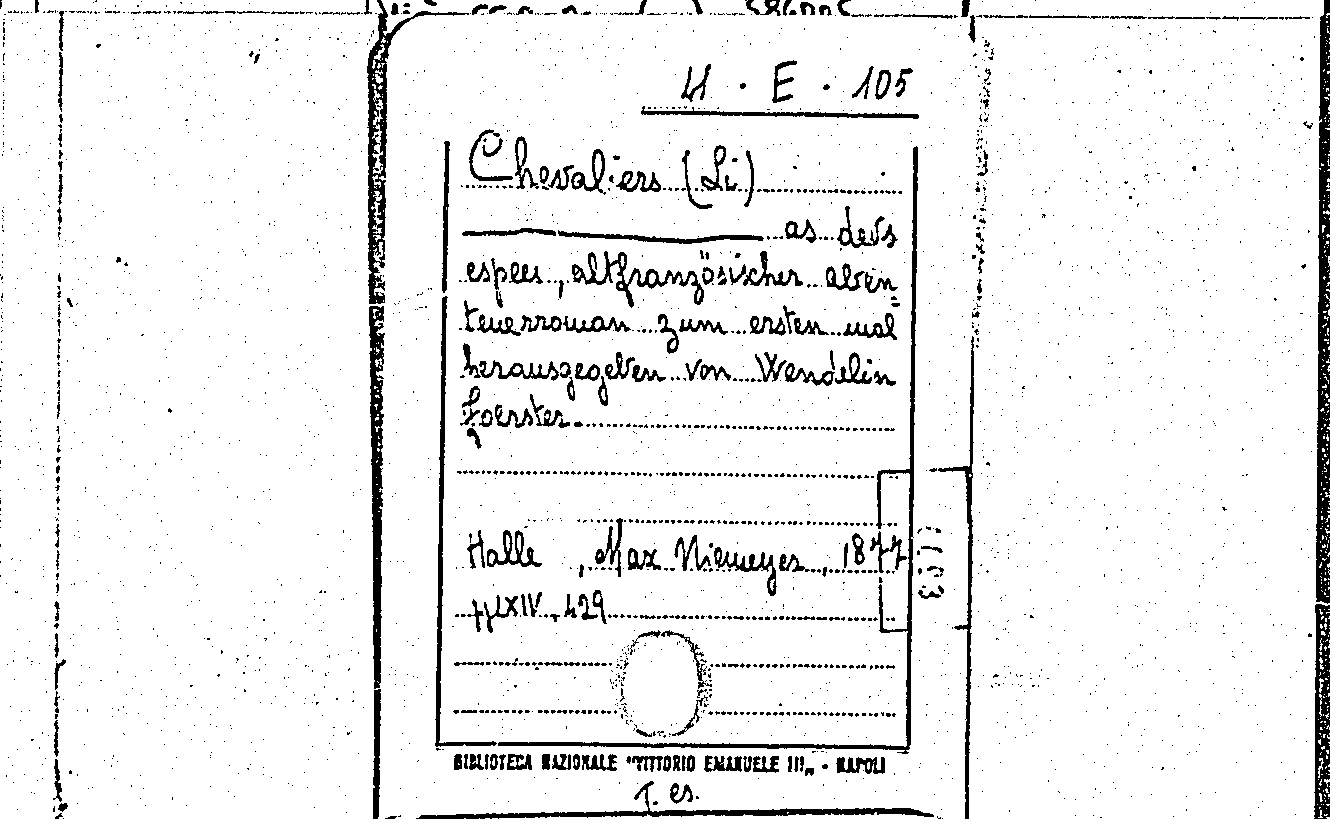 4 · E · 105
Chevaliers (Li)
as devs
espees, altfranzösischer aben=
teuerroman zum ersten mal
herausgegeben von Wendelin
Foerster.
Halle, Max Niemeyer, 1877
pp LXIV, 429
BIBLIOTECA NAZIONALE "VITTORIO EMANUELE III„ - NAPOLI